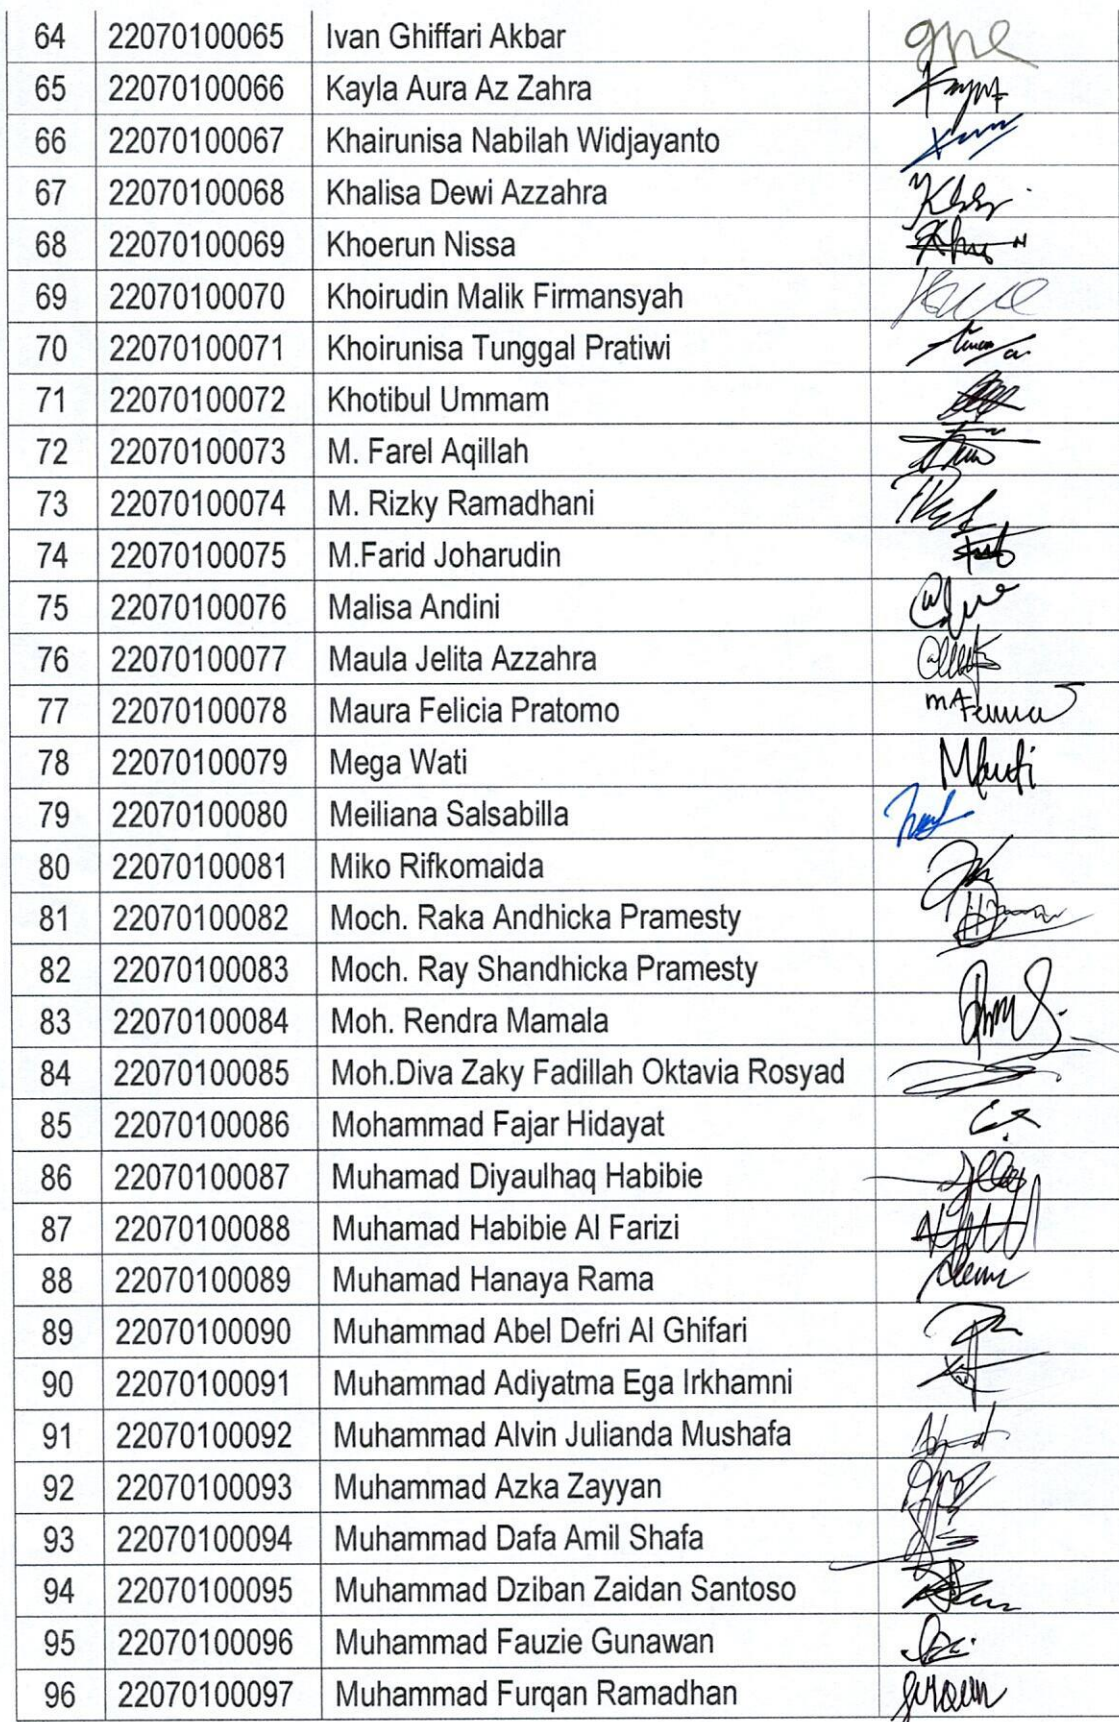 64 22070100065 Ivan Ghiffari Akbar
65 22070100066 Kayla Aura Az Zahra
66 22070100067 Khairunisa Nabilah Widjayanto
67 22070100068 Khalisa Dewi Azzahra
68 22070100069 Khoerun Nissa
69 22070100070 Khoirudin Malik Firmansyah
70 22070100071 Khoirunisa Tunggal Pratiwi
71 22070100072 Khotibul Ummam
72 22070100073 M. Farel Aqillah
73 22070100074 M. Rizky Ramadhani
74 22070100075 M.Farid Joharudin
75 22070100076 Malisa Andini
76 22070100077 Maula Jelita Azzahra
77 22070100078 Maura Felicia Pratomo
78 22070100079 Mega Wati
79 22070100080 Meiliana Salsabilla
80 22070100081 Miko Rifkomaida
81 22070100082 Moch. Raka Andhicka Pramesty
82 22070100083 Moch. Ray Shandhicka Pramesty
83 22070100084 Moh. Rendra Mamala
84 22070100085 Moh.Diva Zaky Fadillah Oktavia Rosyad
85 22070100086 Mohammad Fajar Hidayat
86 22070100087 Muhamad Diyaulhaq Habibie
87 22070100088 Muhamad Habibie Al Farizi
88 22070100089 Muhamad Hanaya Rama
89 22070100090 Muhammad Abel Defri Al Ghifari
90 22070100091 Muhammad Adiyatma Ega Irkhamni
91 22070100092 Muhammad Alvin Julianda Mushafa
92 22070100093 Muhammad Azka Zayyan
93 22070100094 Muhammad Dafa Amil Shafa
94 22070100095 Muhammad Dziban Zaidan Santoso
95 22070100096 Muhammad Fauzie Gunawan
96 22070100097 Muhammad Furqan Ramadhan